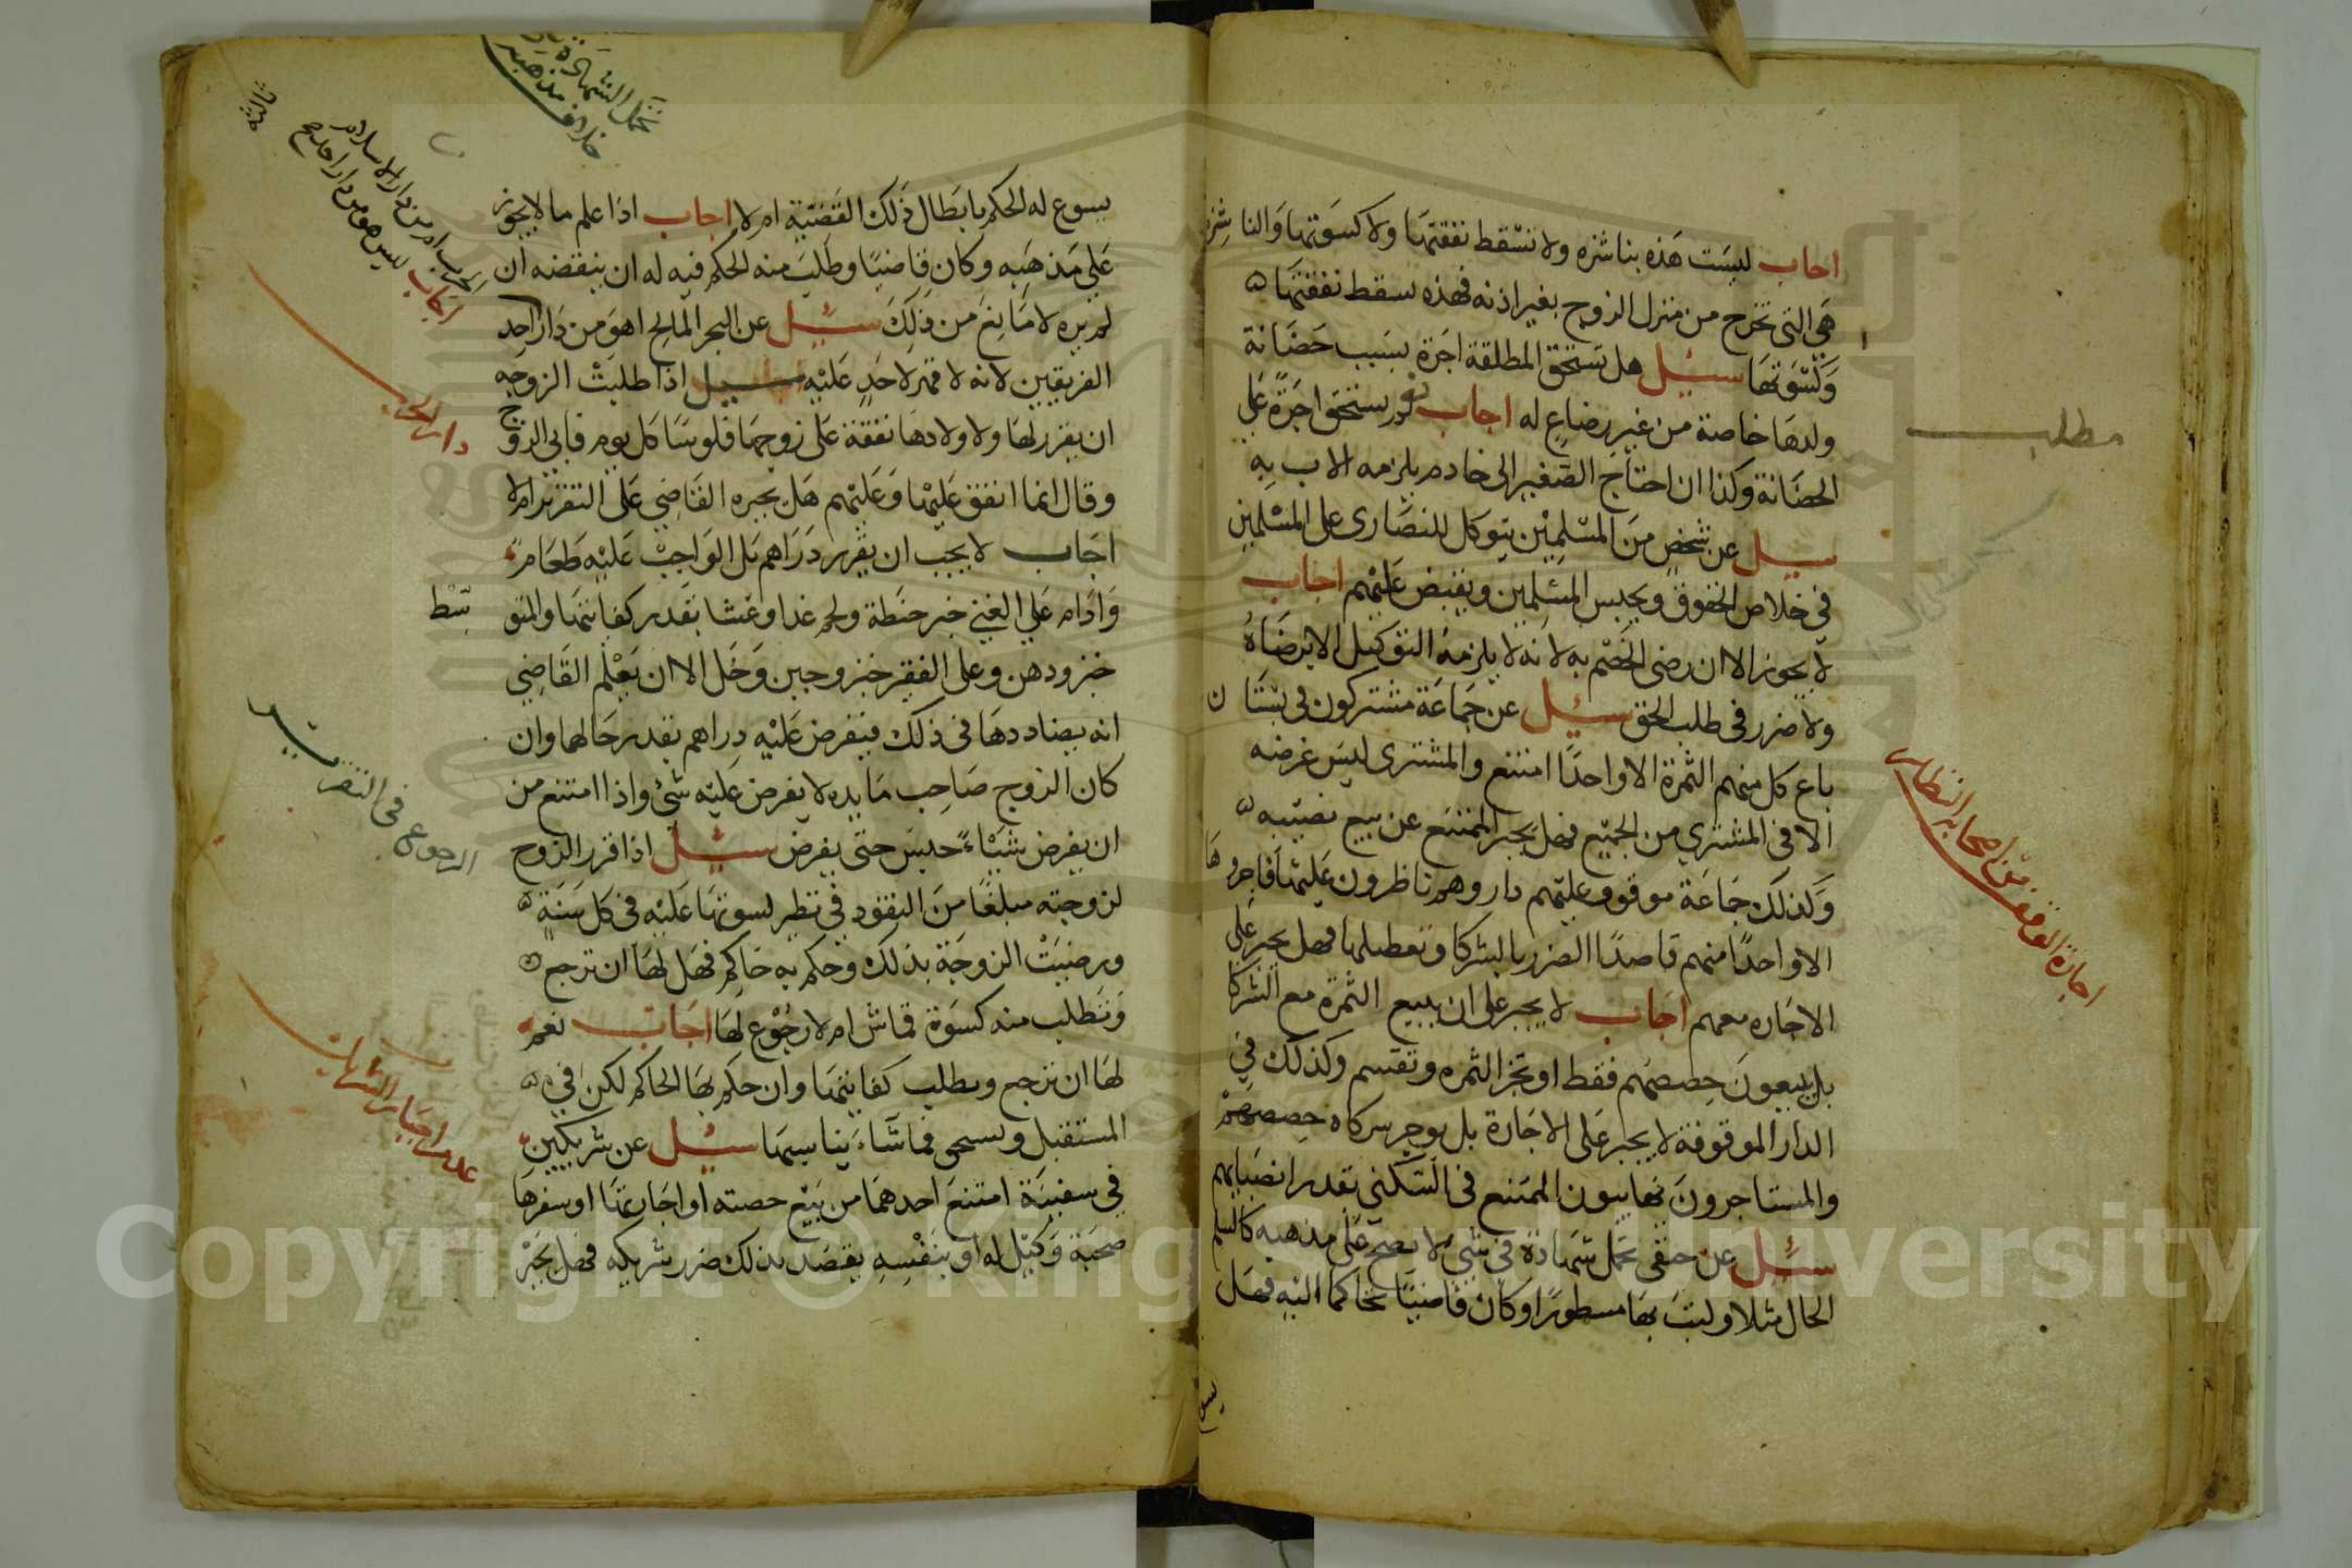 اجاب ليست هذه بناشزه ولا تسقط نفقتها ولا كسوتها والناشزه
هي التي تخرج من منزل الزوج بغير اذنه فهذه تسقط نفقتها
وكسوتها سيل هل تستحق المطلقة اجرة بسبب حضانة
ولدها خاصة من غير رضاع له اجاب نعم تستحق اجرة على
الحضانة وكذا ان احتاج الصغير الى خادم يلزمه الاب به
سيل عن شخص من المسلمين يتوكل للنصارى على المسلمين
في خلاص الحقوق ويحبس المسلمين ويقبض عليهم اجاب
لا يجوز الا ان رضى الخصم به لانه لا يلزمه التوكيل الا برضاه
ولا ضرر في طلب الحق سيل عن جماعة مشتركون في بستان
باع كل منهم الثمرة الا واحدا امتنع والمشترى ليس غرضه
الا في المشتري من الجميع فهل يجبر الممتنع عن بيع نصيبه
وكذلك جماعة موقوف عليهم دار وهم ناظرون عليها فاجروها
الا واحدا منهم قاصدا الضرر بالشركا وتعطيلها فهل يجبر على
الاجاره معهم اجاب لا يجبر على ان يبيع الثمرة مع الشركا
بل يبيعون حصصهم فقط او تجز الثمره وتقسم وكذلك في
الدار الموقوفة لا يجبر على الاجارة بل يوجر شركاه حصصهم
والمستاجرون يهايبون الممتنع في السكنى بقدر انصبايهم
سيل عن حنفى تحمل شهادة في شى لا يصح على مذهبه كالسلم
الحال مثلا وكتب بها مسطورا وكان قاضيا تحاكما اليه فهل
مطلب
اجارة الوقف من اصحابه النظار
يسوغ له الحكم بابطال ذلك القضية ام لا اجاب اذا علم ما لا يجوز
على مذهبه وكان قاضيا وطلب منه الحكم فيه له ان ينقضه ان
لم يره لا مانع من ذلك سيل عن البحر المالح اهو من دار احد
الفريقين لانه لا قهر لاحد عليه سيل اذا طلبت الزوجه
ان يقرر لها ولاولادها نفقة على زوجها فلوسا كل يوم فابى الزوج
وقال انما انفق عليها وعليهم هل يجبره القاضي على التقرير ام لا
اجاب لا يجب ان يقرر دراهم بل الواجب عليه طعام
وادام على الغني خبز حنطة ولحم غدا وعشا بقدر كفايتها والمتو
سط
خبز ودهن وعلى الفقير خبز وجبن وخل الا ان يعلم القاضي
انه يضاددها في ذلك فيفرض عليه دراهم بقدر حالهما وان
كان الزوج صاحب مايده لا يفرض عليه شئ واذا امتنع من
ان يفرض شياء حبس حتى يفرض سيل اذا قرر الزوج
لزوجته مبلغا من النقود في نظير كسوتها عليه في كل سنة
ورضيت الزوجة بذلك وحكم به حاكم فهل لها ان ترجع
وتطلب منه كسوة قماش ام لا رجوع لها اجاب نعم
لها ان ترجع وتطلب كفايتها وان حكم بها الحاكم لكن في
المستقبل قماشاء يناسبها سيل عن شريكين
في سفينة امتنع احدهما من بيع حصته او اجارتها او سفرها
صحبة وكيل له او بنفسه بقصد بذلك ضرر شريكه فهل يجبر
تحمل الشهادة
خلاف مذهبه
الحرب ام من دار الاسلام
اجاب ليس هو من دار احد
دار الحرب
الرجوع في التقرير
عدم اجبار الشريك
Copyright © King Saud University